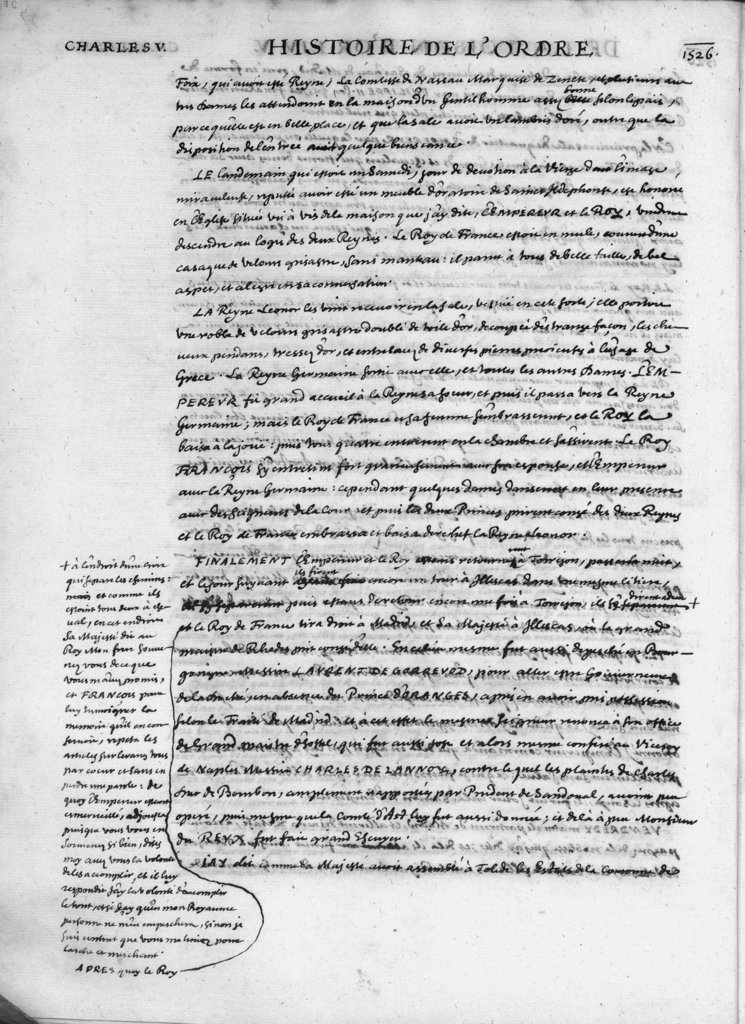 CHARLES V.
HISTOIRE DE L'ORDRE
1526.
Foix, qui avoit esté Reyne, La Comtesse de Nassau Marquise de Zenete, et plusieurs au
tres Dames les attendoient en la maison d'un Gentilhomme assez bonne selon le païs,
parce qu'elle est en belle place, et que la sale avoit un lambris doré, outre que la
disposition de l'entrée avoit quelque bienseance.
LE landemain qui estoit un Samedi, jour de devotion à la Vierge dont l'image
miraculeuse, reputée avoir esté un meuble d'oratoire de Sainct Ildephonse, est honorée
en l'Eglise située vis à vis de la maison que j'ay dite, L'EMPEREVR et le ROY, vindrent
descendre au logis des deux Reynes. Le Roy de France estoit en mule, couvert d'une
casaque de velours grisastre, sans manteau: il parut à tous de belle taille, de bel
aspect, et alegre en sa conversation.
LA Reyne Leonor les vint recevoir en la sale, vestuë en cete sorte; elle portoit
une robe de velours grisastre doublé de toile d'or, decoupée d'estrange façon, les che
veux pendans, tressez d'or, et entrelacez de diverses pierres precieuses à l'usage de
Grece. La Reyne Germaine sortit avec elle, et toutes les autres Dames. L'EM-
PEREVR fit grand accueil à la Reyne sa soeur, et puis il passa vers la Reyne
Germaine; mais le Roy de France et sa femme s'embrasserent, et le ROY la
baisa à la joüe: puis tous quatre entrerent en la chambre et s'assirent. Le ROY
FRANÇOIS s'y entretint fort gratieusement avec son espouse, et l'Empereur
avec la Reyne Germaine: cependant quelques dames danserent en leur presence
avec des Seigneurs de la Cour: et puis les deux Princes prirent congé des deux Reynes
et le Roy de France embrassa et baisa derechef la Reyne Leonor.
FINALEMENT l'Empereur et le Roy vont à Torrejon, passer la nuit,
et le jour suyvant ils firent encore un tour à Illescas dans une mesme litiere,
puis estans de retour encore une fois à Torrejon, ils se dirent adieu +
et le Roy de France tira droit à Madrid, et Sa Majesté à Illescas, où le grand
maistre de Rhodes prit congé d'elle. En ce tems mesme fut aussi depeché en Bour-
gongne Messire LAURENT DE GORREVOD, pour aller estre Gouverneur
de la Duché, en absence du Prince d'ORANGES, apres en avoir pris possession
selon le Traité de Madrid: et à cet effet le mesme Seigneur renonça à son office
de Grand maistre d'hostel, qui fut aussi tost et alors mesme conferé au Viceroy
de Naples Messire CHARLES DE LANNOY, contre lequel les plaintes de Charles
Duc de Bourbon, amplement rapportées par Prudent de Sandoual, avoient peu
operé, puis mesme que la Comté d'Ast luy fut aussi donnée; et de là à peu Monsieur
du REVX fut fait grand Escuyer.
JAY dit comme Sa Majesté avoit assemblé à Tolede les Estats de la Couronne de
+ à l'endroit d'une croix
qui separe les chemins:
mais et comme ils
estoient tous deux à che
val, en cet endroit
Sa Majesté dit au
Roy Mon frere Souve
nez vous de ce que
vous m'avez promis,
et FRANÇOIS pour
luy tesmoigner la
memoire qu'il en con
servoit, repeta les
articles suivans tous
par coeur et sans en
perdre une parole: de
quoy l'Empereur estant
esmerveillé, adjousta
puisque vous vous en
souvenez si bien, dites
moy avez vous la volonté
de les acomplir, et il luy
respondit j'ay la volonté d'acomplir
le tout, et si sçay qu'en mon Royaume
personne ne m'en empeschera, sinon je
suis content que vous me teniez pour
lasche et meschant.
APRES quoy le Roy